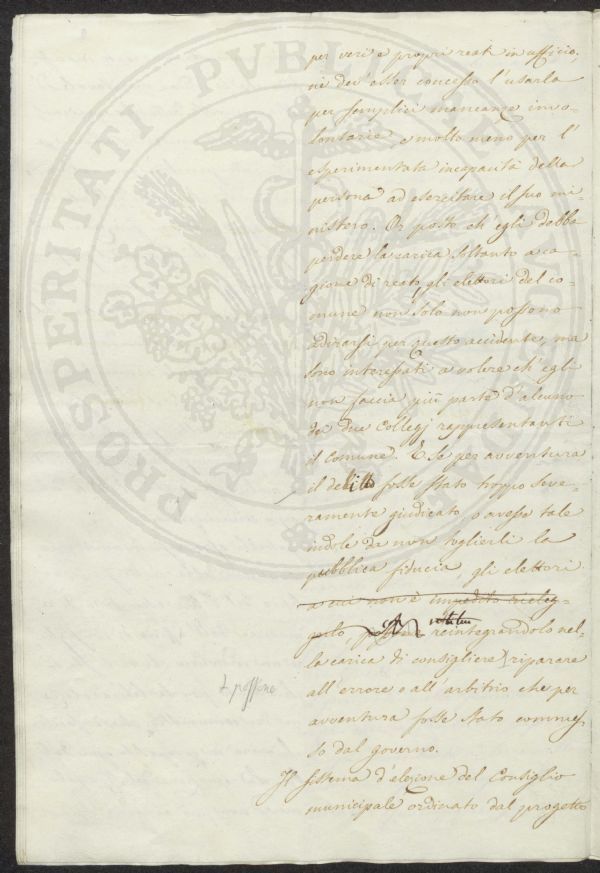 per veri e propri reati in ufficio,
nè dev'esser concesso l'usarla
per semplici mancanze invo-
lontarie e molto meno per l'
esperimentata incapacità della
persona ad esercitare il suo mi-
nistero. Or posto ch'egli debba
perdere la carica soltanto a ca-
gione di reato, gli elettori del co-
mune non solo non possono
adirarsi per questo accidente, ma
sono interessati a volere ch'egli
non faccia più parte d'alcuno
de' due Collegj rappresentanti
il Comune. E se per avventura
il delitto fosse stato troppo seve-
ramente giudicato, o avesse tale
indole da non toglierli la
pubblica fiducia, gli elettori
a cui non è impedito rieleg-
gerlo, reintegrandolo nel-
la carica di consigliere riparare
+ possono
all'errore o all'arbitrio che per
avventura fosse stato commes-
so dal governo.
Il sistema d'elezione del Consiglio
municipale ordinato dal progetto
PROSPERITATI PVBLICAE AVGENDAE